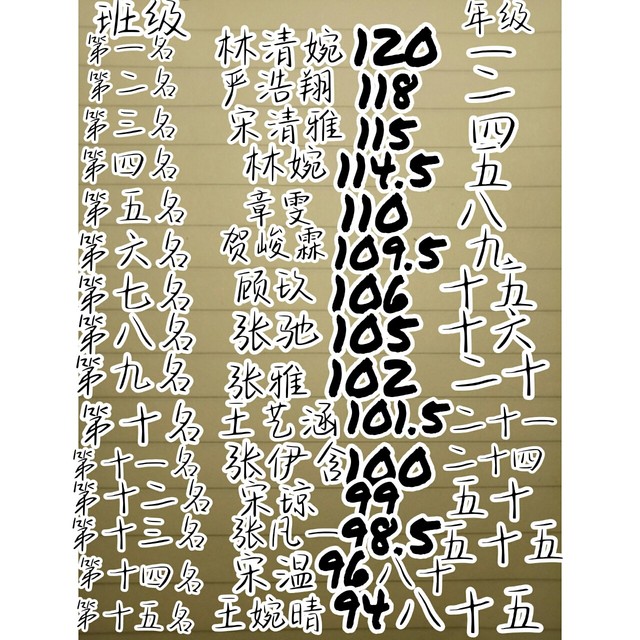 班级 年级
第一名 林清婉 120 一
第二名 严浩翔 118 二
第三名 宋清雅 115 四
第四名 林婉 114.5 五
第五名 章雯 110 八
第六名 贺峻霖 109.5 九
第七名 顾玖 106 十五
第八名 张驰 105 十六
第九名 张雅 102 二十
第十名 王艺涵 101.5 二十一
第十一名 张伊含 100 二十四
第十二名 宋琼 99 五十
第十三名 张凡一 98.5 五十五
第十四名 宋温 96 八十
第十五名 王婉晴 94 八十五